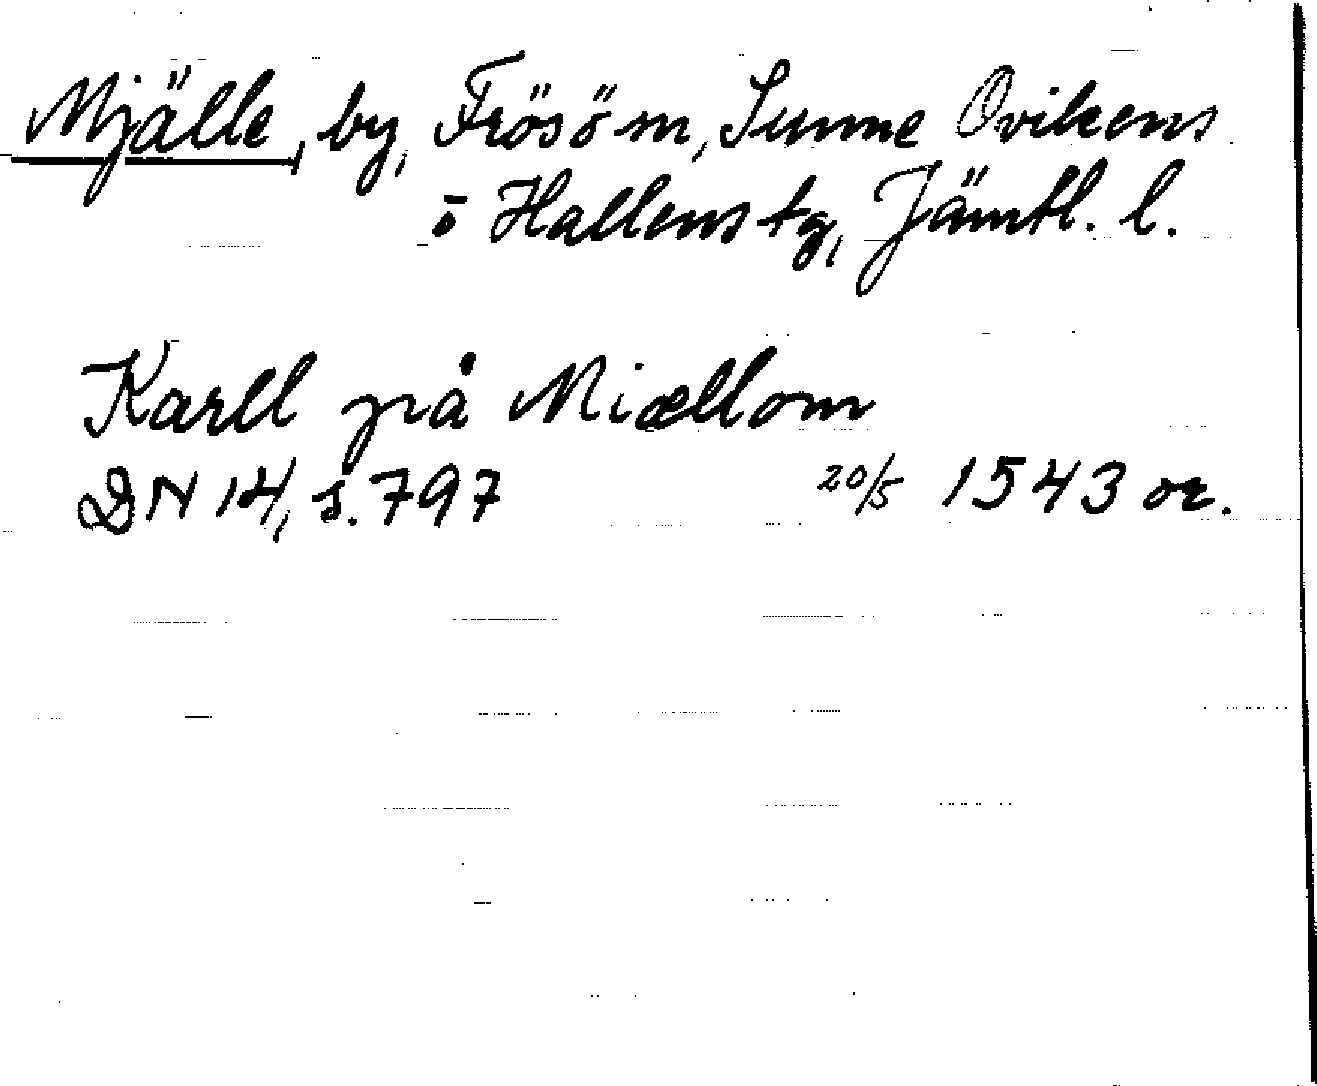 Mjälle, by, Frösö sn, Sunne Ovikens
o Hallens tg, Jämtl. l.
Karll på Miællom
DN 14, s. 797 20/5 1543 or.